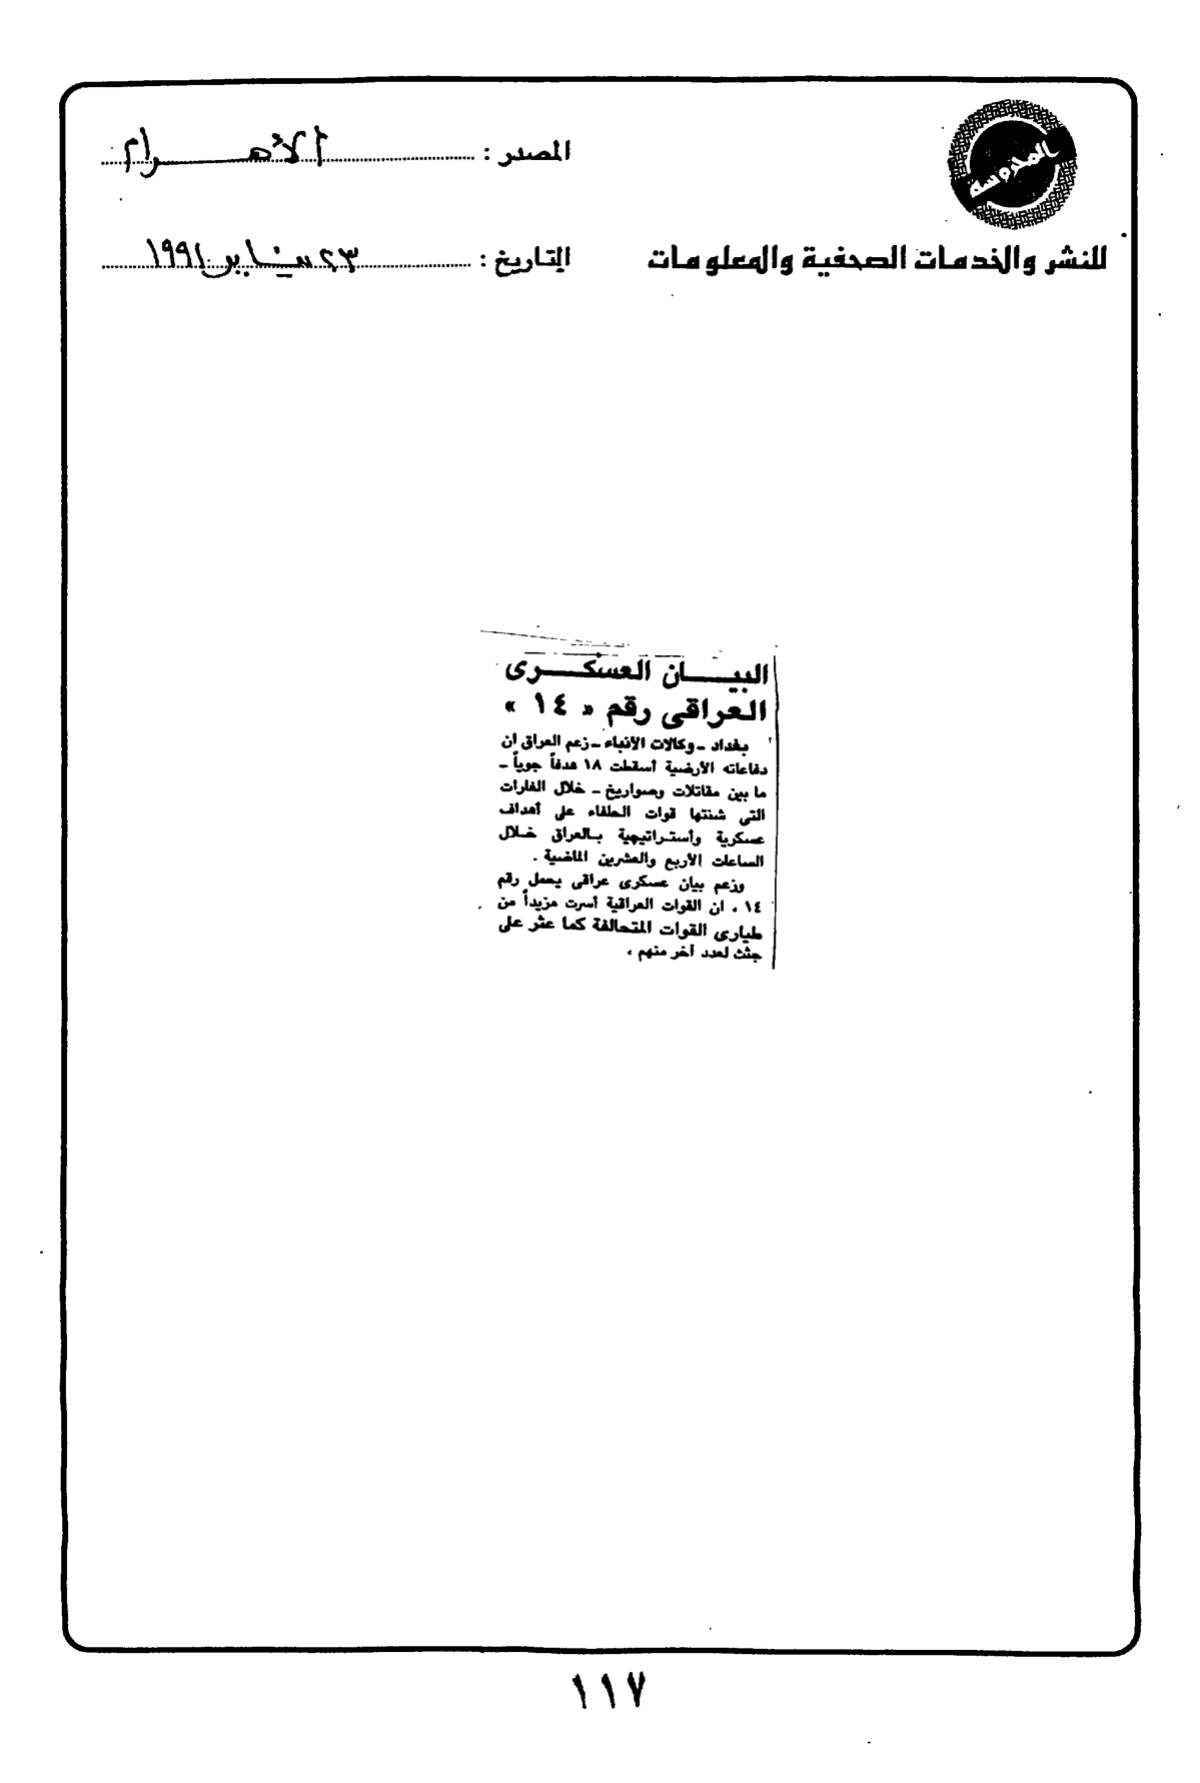 المحروسة
المصدر : الأهـــرام
للنشر والخدمات الصحفية والمعلومات
التاريخ : ٢٣ يناير ١٩٩١
البيـــــان العسكـــــرى
العراقى رقم « ١٤ »
بغداد ـ وكالات الأنباء ـ زعم العراق ان
دفاعاته الأرضية أسقطت ١٨ هدفاً جوياً ـ
ما بين مقاتلات وصواريخ ـ خلال الغارات
التى شنتها قوات الحلفاء على أهداف
عسكرية وأستراتيجية بالعراق خلال
الساعات الأربع والعشرين الماضية .
وزعم بيان عسكرى عراقى يحمل رقم
١٤ ، ان القوات العراقية أسرت مزيداً من
طيارى القوات المتحالفة كما عثر على
جثث لعدد آخر منهم .
١١٧